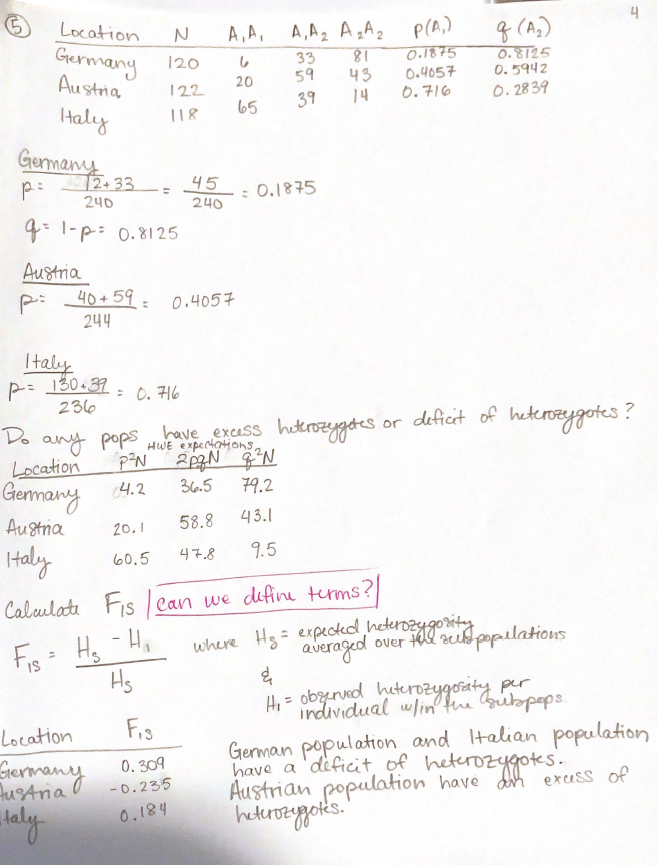 4
⑤ Location N A₁A₁ A₁A₂ A₂A₂ p(A₁) q(A₂)
Germany 120 6 33 81 0.1875 0.8125
Austria 122 20 59 43 0.4057 0.5942
Italy 118 65 39 14 0.716 0.2839
Germany
p = 12+33 / 240 = 45 / 240 = 0.1875
q = 1-p = 0.8125
Austria
p = 40+59 / 244 = 0.4057
Italy
p = 130+39 / 236 = 0.716
Do any pops have excess heterozygotes or deficit of heterozygotes?
HWE expectations
Location p²N 2pqN q²N
Germany 4.2 36.5 79.2
Austria 20.1 58.8 43.1
Italy 60.5 47.8 9.5
Calculate F_IS can we define terms?
F_IS = H_S - H_I / H_S where H_S = expected heterozygosity
averaged over the subpopulations
&
H_I = observed heterozygosity per
individual w/in the subpops.
Location F_IS
Germany 0.309
Austria -0.235
Italy 0.184
German population and Italian population
have a deficit of heterozygotes.
Austrian population have an excess of
heterozygotes.